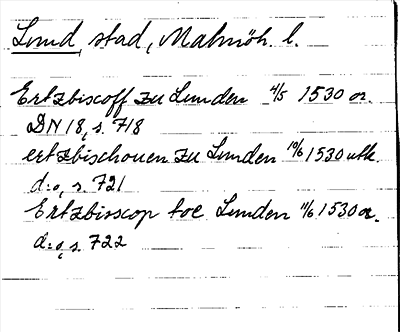 Lund, stad, Malmöh. l.
Ertzbiscoff zu Lunden 4/5 1530 or.
DN 18, s. 718
ertzbischouen zu Lunden 10/6 1530 utk.
d:o, s. 721
Ertzbisscop toe Lunden 11/6 1530 or.
d:o, s. 722